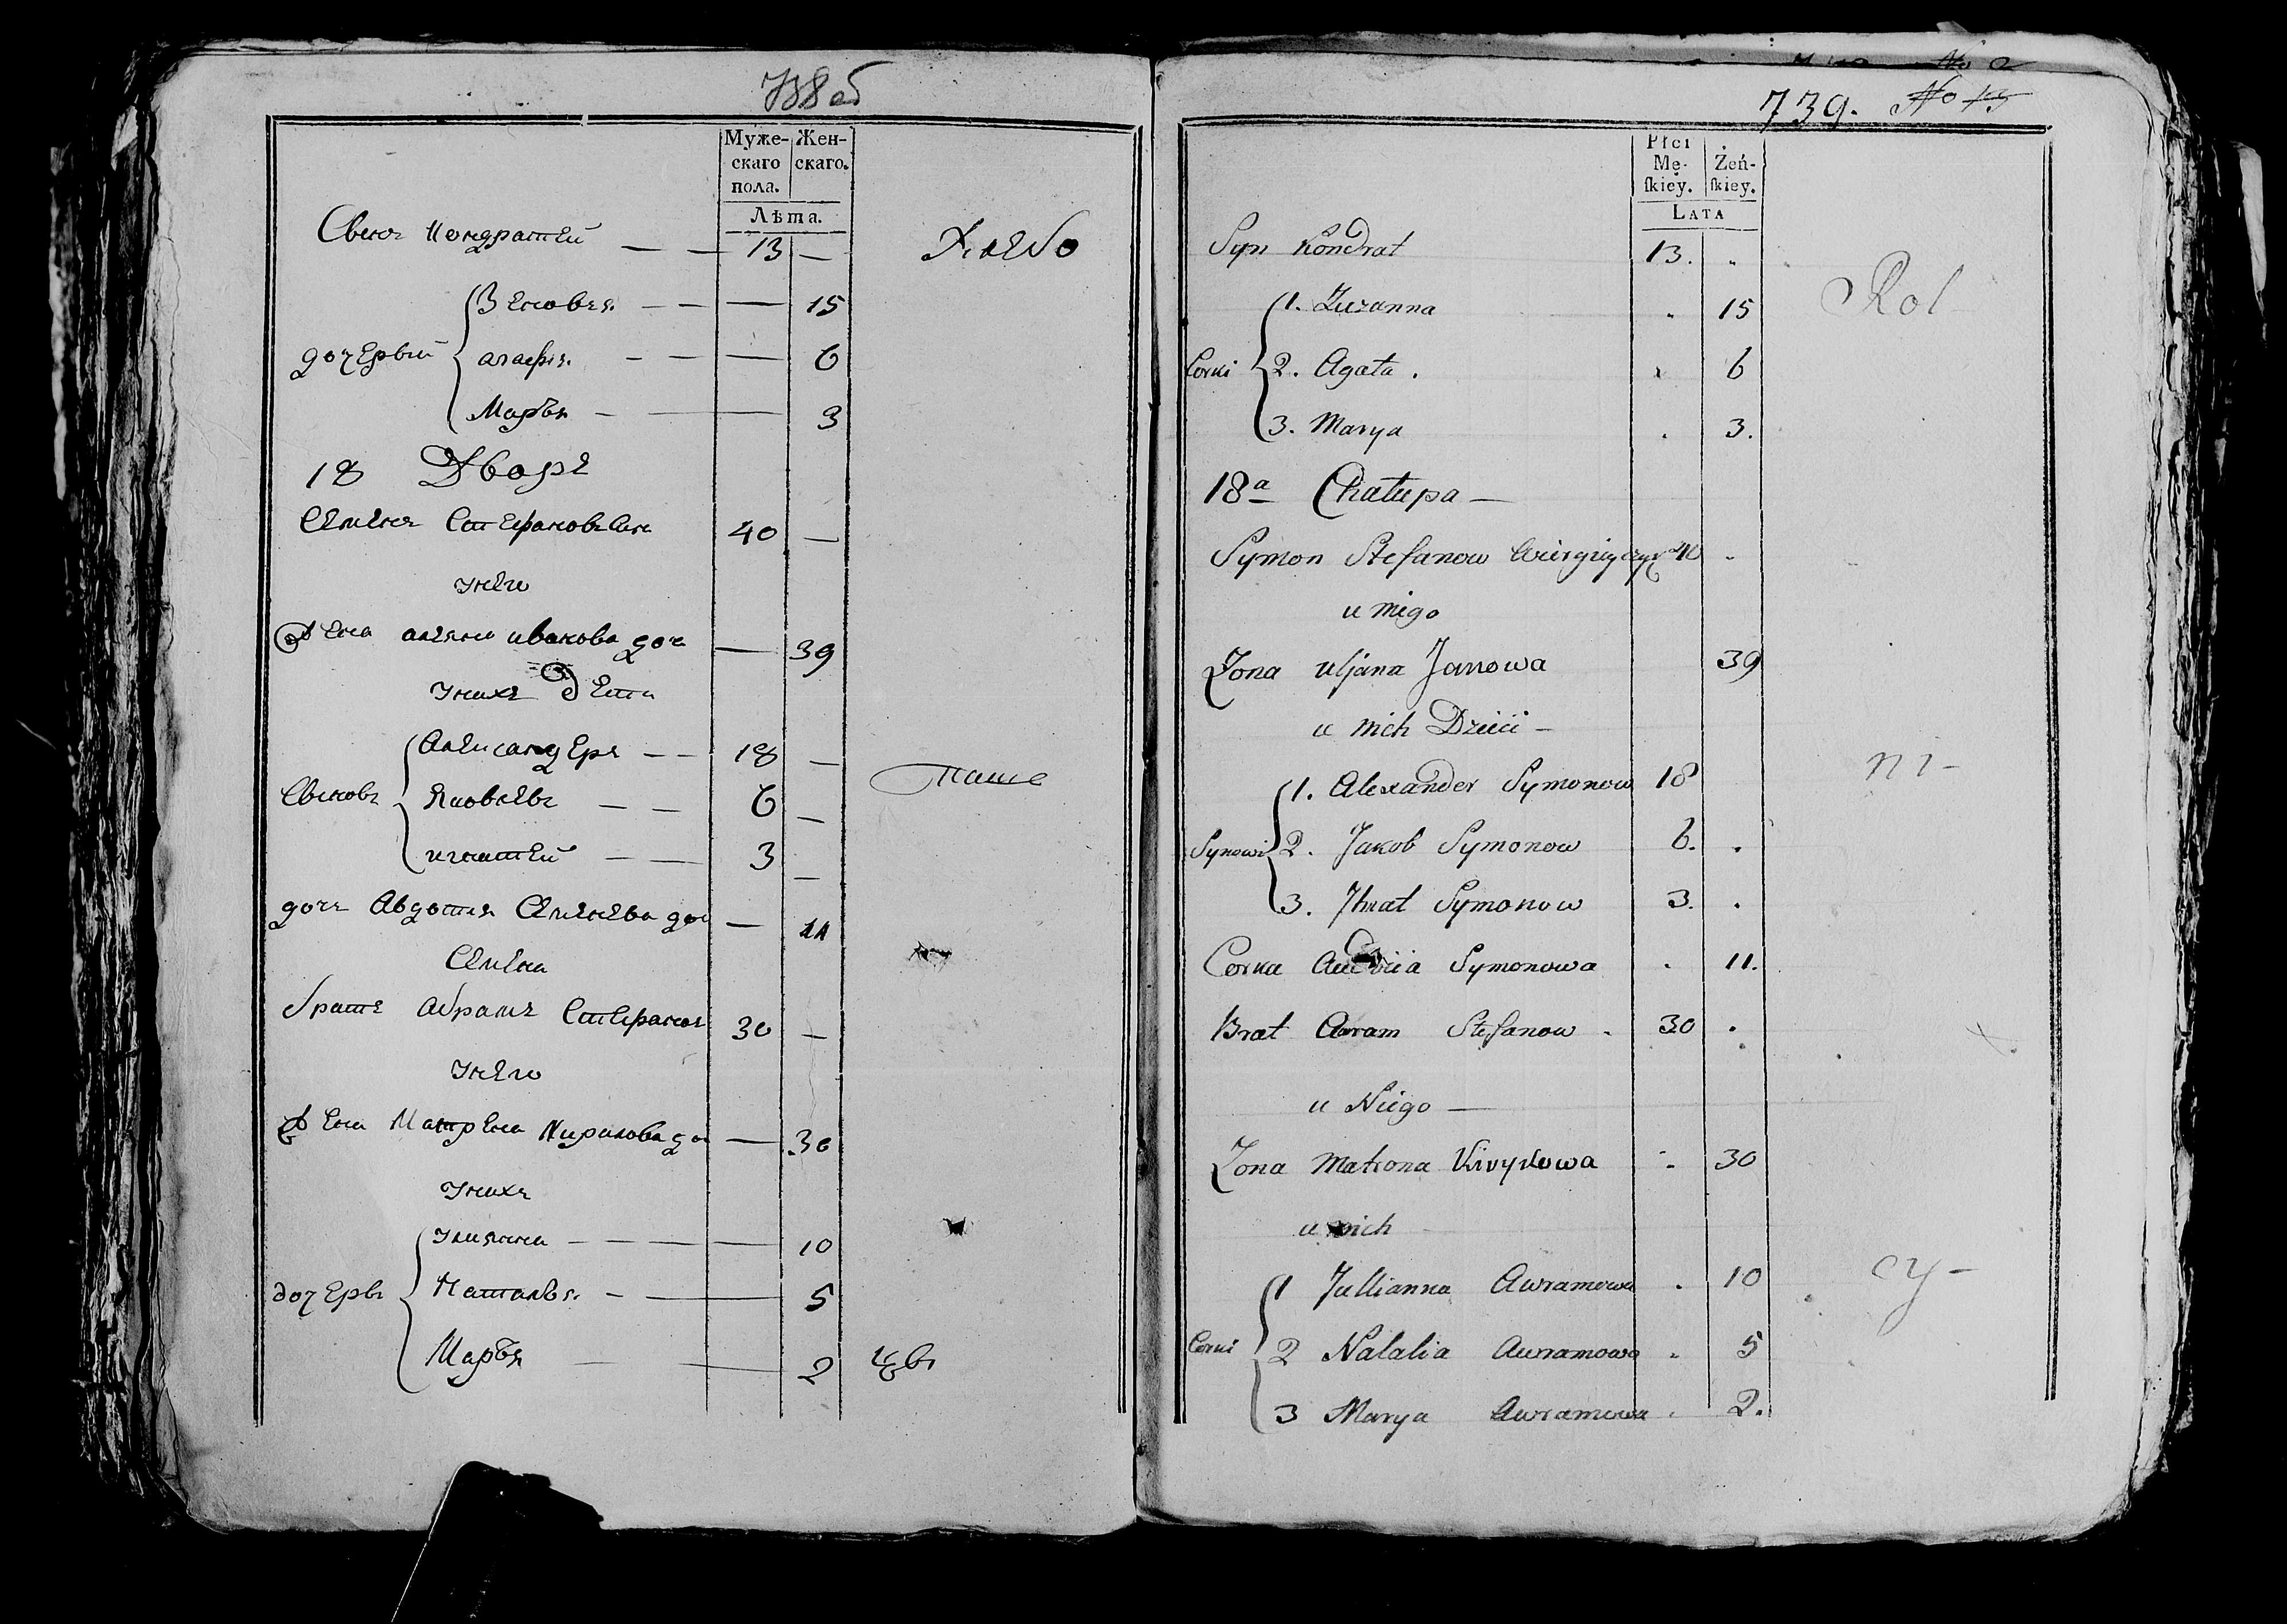 738 об
Муже- Жен-
скаго скаго.
пола.
Лѣта.
Сынъ Кондратей — — 13 —
Хлебо
Зеновья — — — 15
дочерьи агафья — — — 6
Марья — — 3
18 Дворъ
Семенъ Стефановъ сынъ 40 —
унего
Жена ульяна иванова доч — 39
унихъ Дети
Александеръ — — 18 —
паше
Сыновъ Яковлевъ — — 6 —
игнатей — — 3 —
дочь Авдотья Семенева доч — 11
Семена
братъ Абрамъ Стефановъ 30 —
унего
Жена Матрена Кирилова до — 30
унихъ
Улияна — — — 10
дочеръ Наталья — — 5
Марья — — 2
цвы
739. No 15
Płci
Mę- Żeń-
skiey. skiey.
LATA
Syn Kondrat 13.
Rol
1. Zuzanna 15
Corki 2. Agata. 6
3. Marya 3.
18a Chałupa —
Symon Stefanow 40
u niego
Zona uljana Janowa 39
u nich Dzieci —
ni-
1. Alexander Symonow 18
Synowi 2. Jakob Symonow 6.
3. Ihnat Symonow 3.
Corka Symonowa 11.
Brat Awram Stefanow 30
u Niego —
Zona Matrona Kirylowa 30
u nich
cy-
1 Jullianna Awramowa 10
Corki 2 Natalia Awramowa 5
3 Marya Awramowa 2.